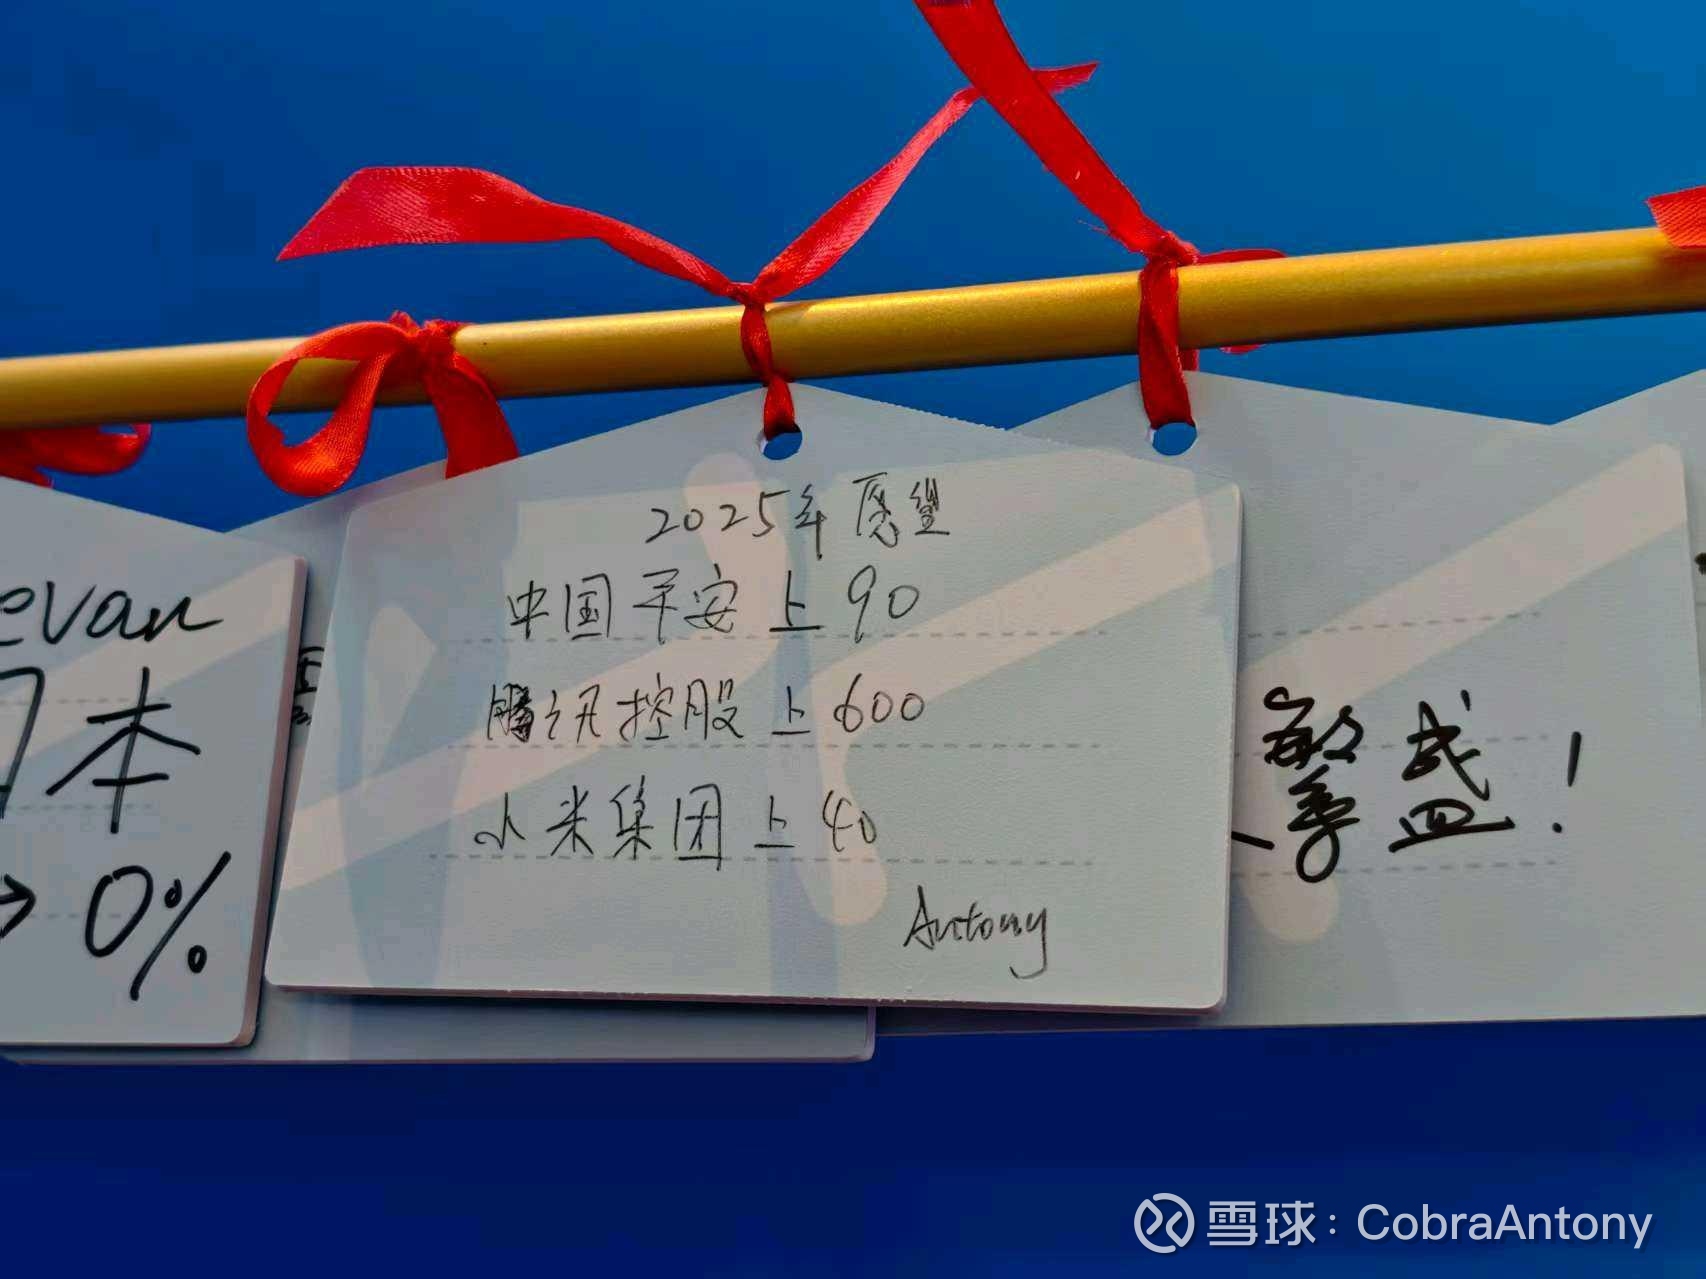 2025年愿望
中国平安上90
腾讯控股上600
小米集团上40
Antony
evan
本
→0%
繁盛!
雪球:CobraAntony